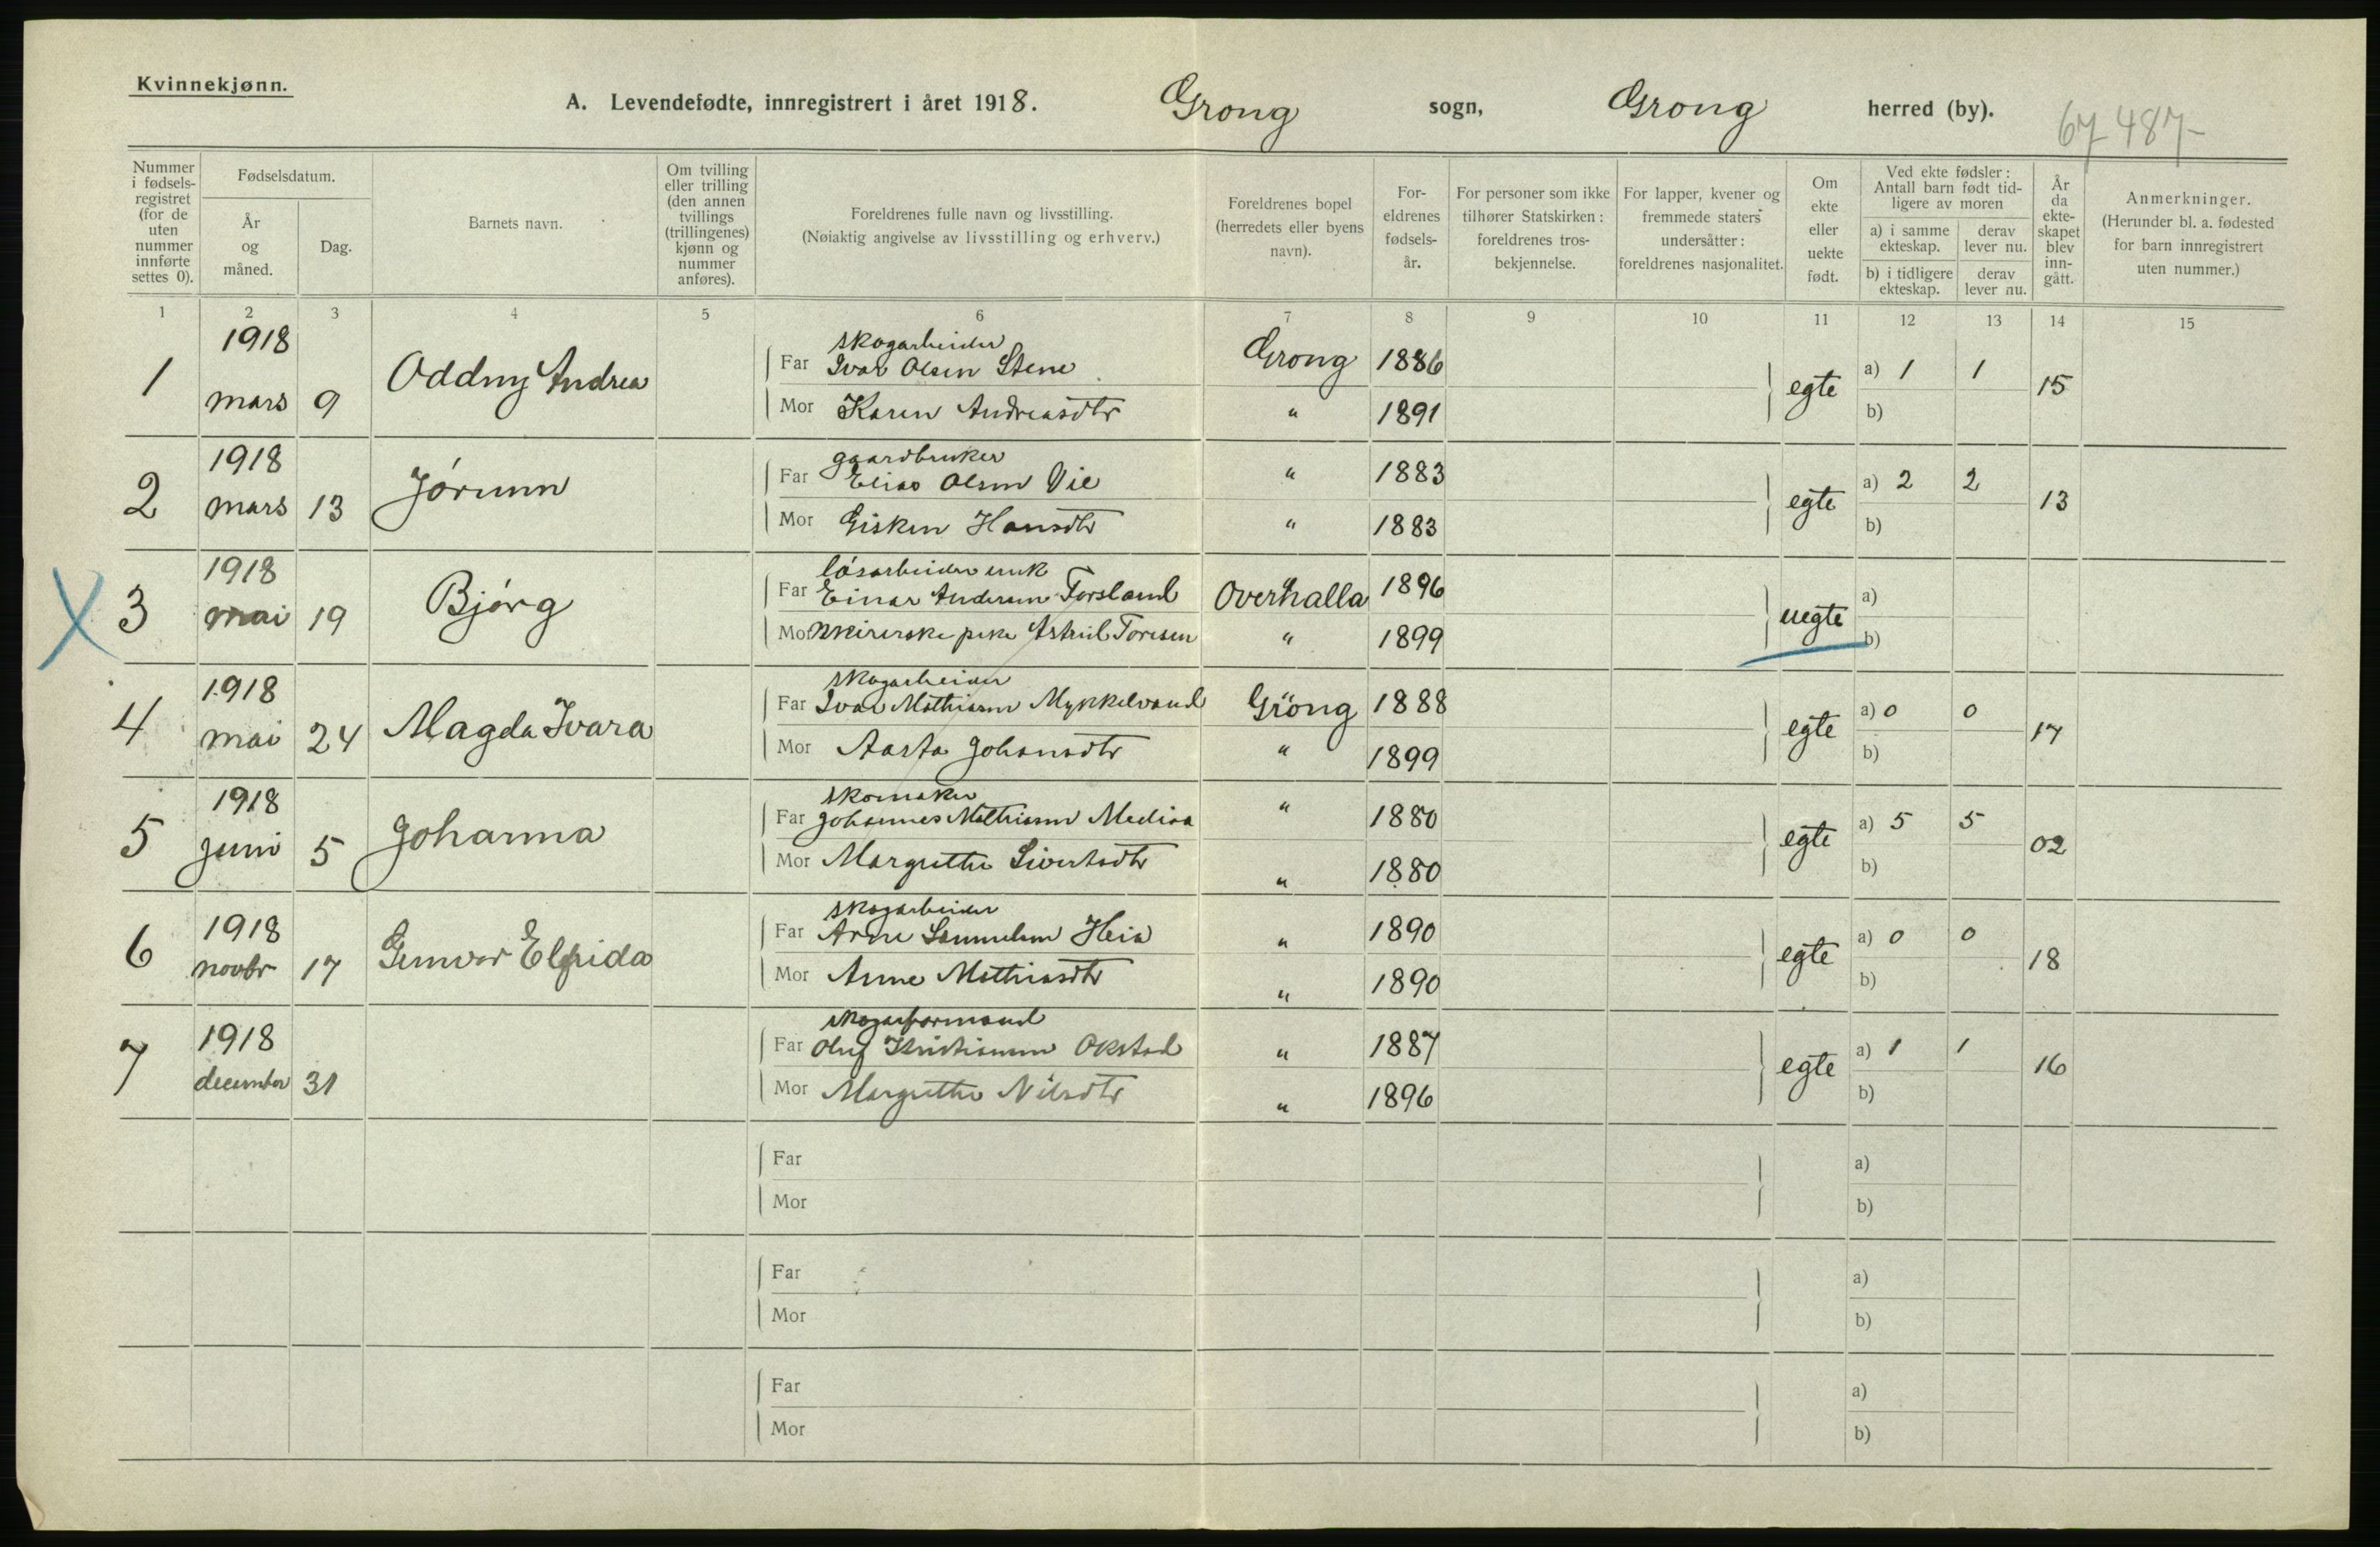 Kvinnekjønn.
A. Levendefødte, innregistrert i året 1918. Grong sogn, Grong herred (by).
67 487-
Nummer i fødselsregistret (for de uten nummer innførte settes 0). Fødselsdatum. År og måned. Dag. Barnets navn. Om tvilling eller trilling (den annen tvillings (trillingenes) kjønn og nummer anføres). Foreldrenes fulle navn og livsstilling. (Nøiaktig angivelse av livsstilling og erhverv.) Foreldrenes bopel (herredets eller byens navn). Foreldrenes fødselsår. For personer som ikke tilhører Statskirken: foreldrenes trosbekjennelse. For lapper, kvener og fremmede staters undersåtter: foreldrenes nasjonalitet. Om ekte eller uekte født. Ved ekte fødsler: Antall barn født tidligere av moren a) i samme ekteskap. derav lever nu. b) i tidligere ekteskap. derav lever nu. År da ekteskapet blev inngått. Anmerkninger. (Herunder bl. a. fødested for barn innregistrert uten nummer.)
1 2 3 4 5 6 7 8 9 10 11 12 13 14 15
1918 skogarbeider
1 mars 9 Oddny Andrea Far Ivar Olsen Stene Grong 1886 egte a) 1 1 15
Mor Karen Andreasdtr " 1891 b)
1918 gaardbruker
2 mars 13 Jórunn Far Elias Olsen Vie " 1883 egte a) 2 2 13
Mor Gisken Hansdtr " 1883 b)
1918 løsarbeider
X 3 mai 19 Bjórg Far Einar Andersen Forsland Overhalla 1896 uegte a)
Mor pike Astrid Toresen " 1899 b)
1918 skogarbeider
4 mai 24 Magda Ivara Far Ivar Mathiasen Mykkelvand Grong 1888 egte a) 0 0 17
Mor Aasta Johansdtr " 1899 b)
1918 skomaker
5 juni 5 Johanna Far Johannes Mathiasen Mediaa " 1880 egte a) 5 5 02
Mor Margrethe Sivertsdtr " 1880 b)
1918 skogarbeider
6 novbr 17 Gunvor Elfrida Far Arne Samuelsen Heia " 1890 egte a) 0 0 18
Mor Anne Mathiasdtr " 1890 b)
1918 skogsformand
7 december 31 Far Oluf Kristiansen Okstad " 1887 egte a) 1 1 16
Mor Margrethe Nilsdtr " 1896 b)
Far a)
Mor b)
Far a)
Mor b)
Far a)
Mor b)